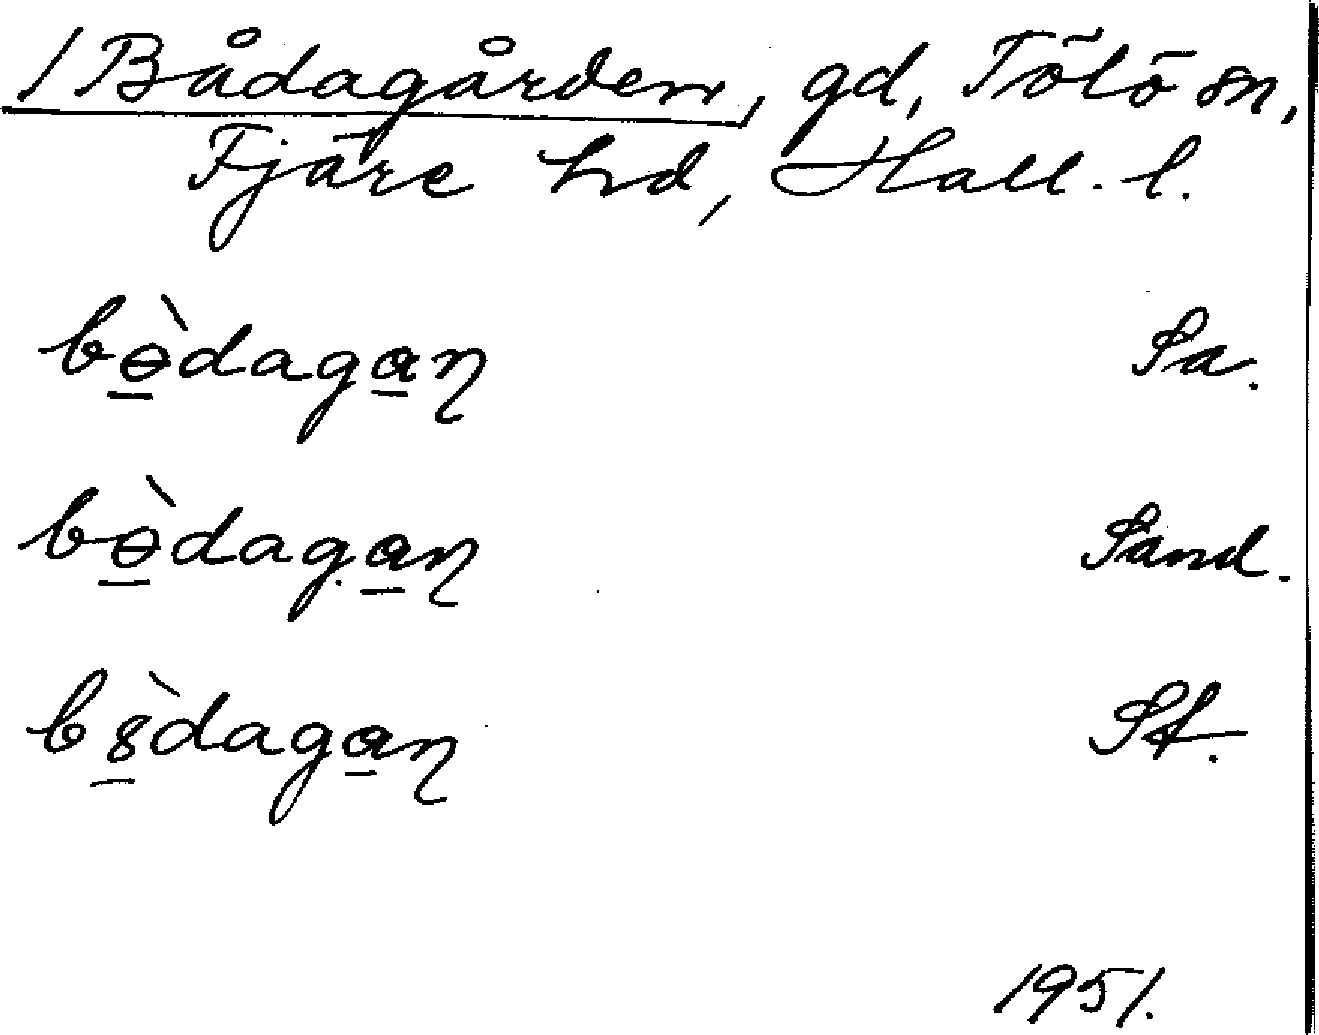 /Bådagården, gd, Tölö sn,
Fjäre hd, Hall. l.
bɵ̲̀daga̲ɳ Sa.
bɵ̲̀daga̲ɳ Sand.
b8̲̀daga̲ɳ St.
1951.